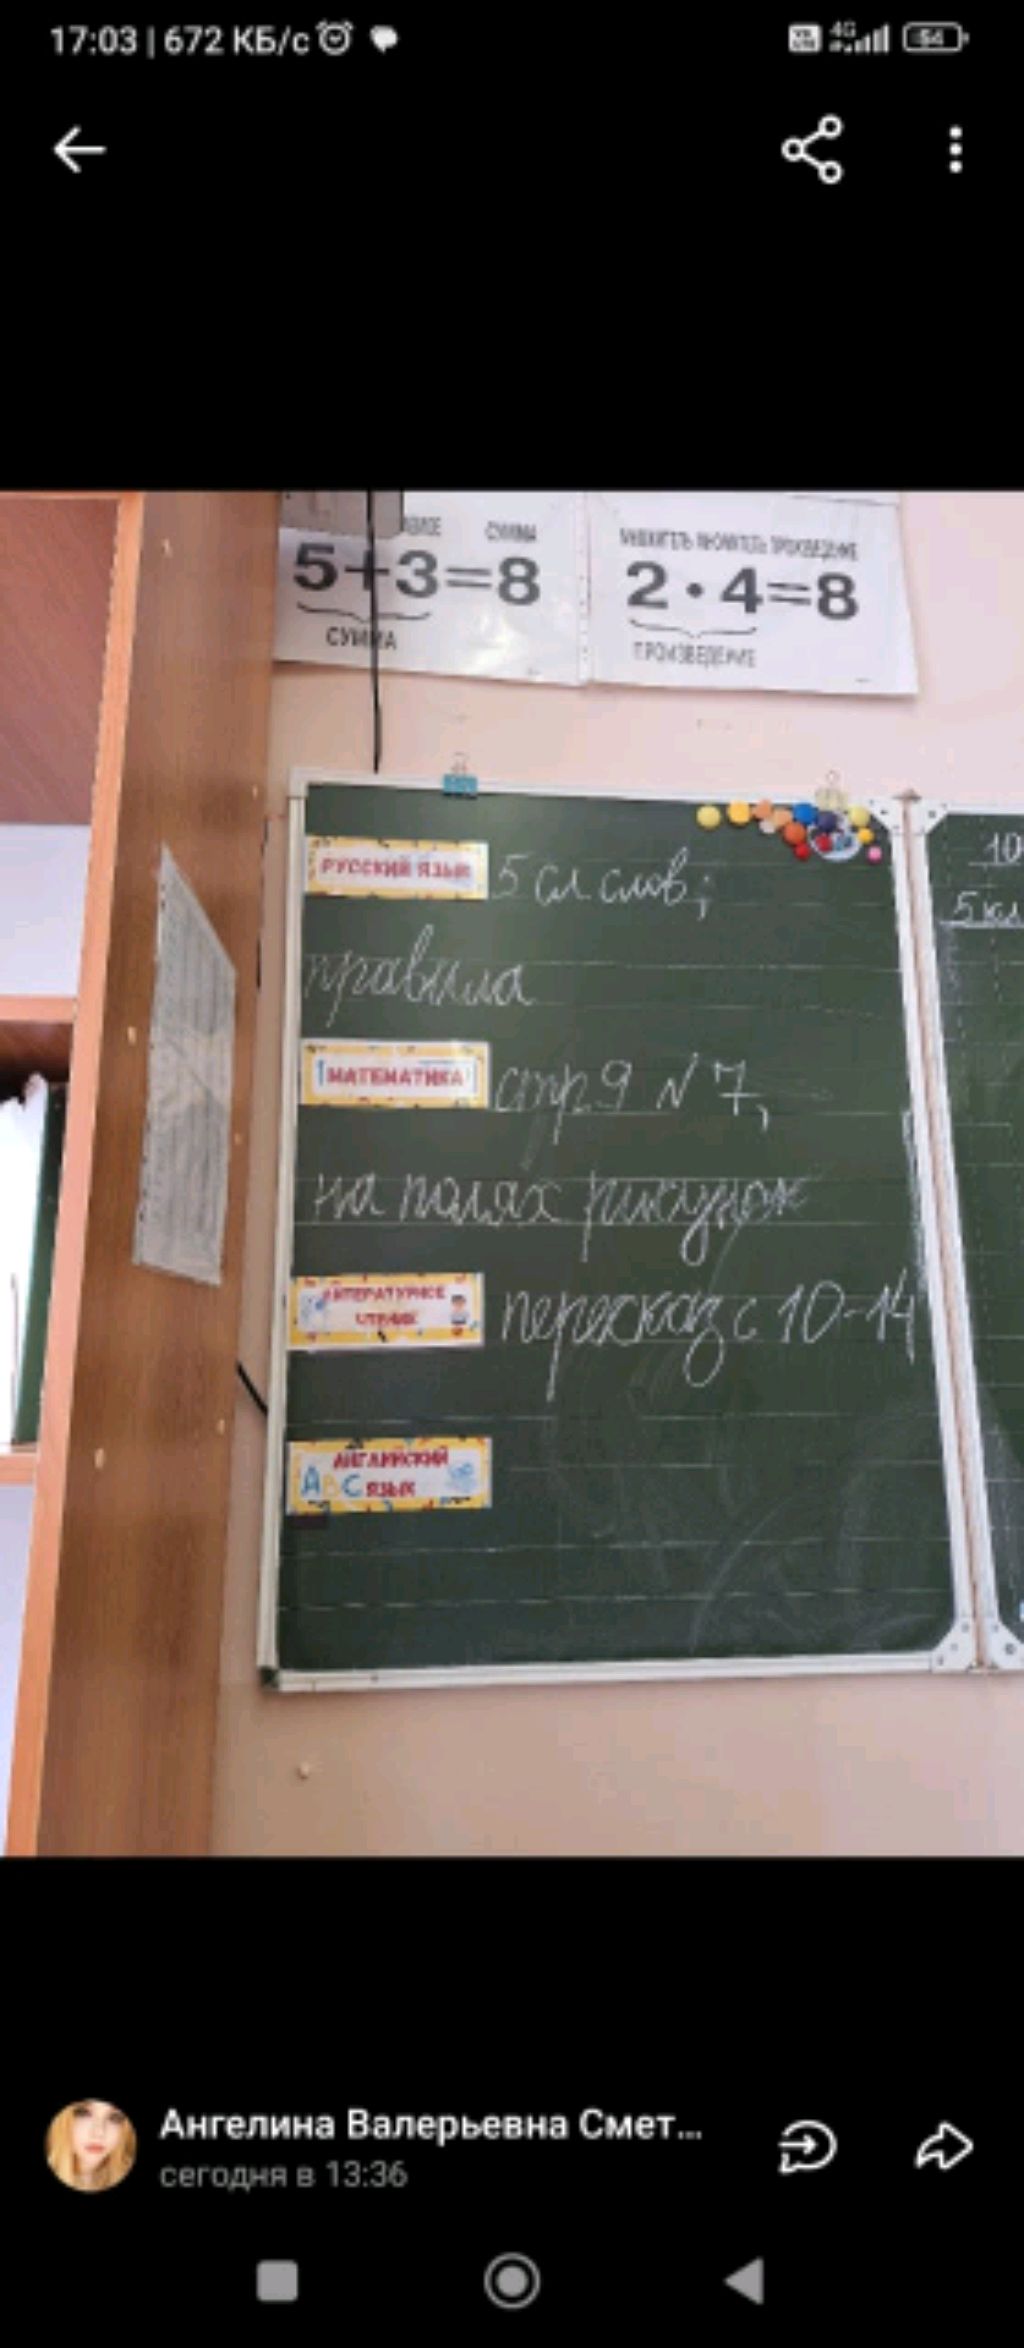 17:03 | 672 КБ/с
4G
54
СУММА
5+3=8
СУММА
МНОЖИТЕЛЬ МНОЖИТЕЛЬ ПРОИЗВЕДЕНИЕ
2·4=8
ПРОИЗВЕДЕНИЕ
РУССКИЙ ЯЗЫК 5 сл слов;
правила
МАТЕМАТИКА стр 9 N 7,
на полях рисунок
ЛИТЕРАТУРНОЕ
ЧТЕНИЕ
пересказ с 10-14
АНГЛИЙСКИЙ
ABC ЯЗЫК
10
5 кл
Ангелина Валерьевна Смет...
сегодня в 13:36